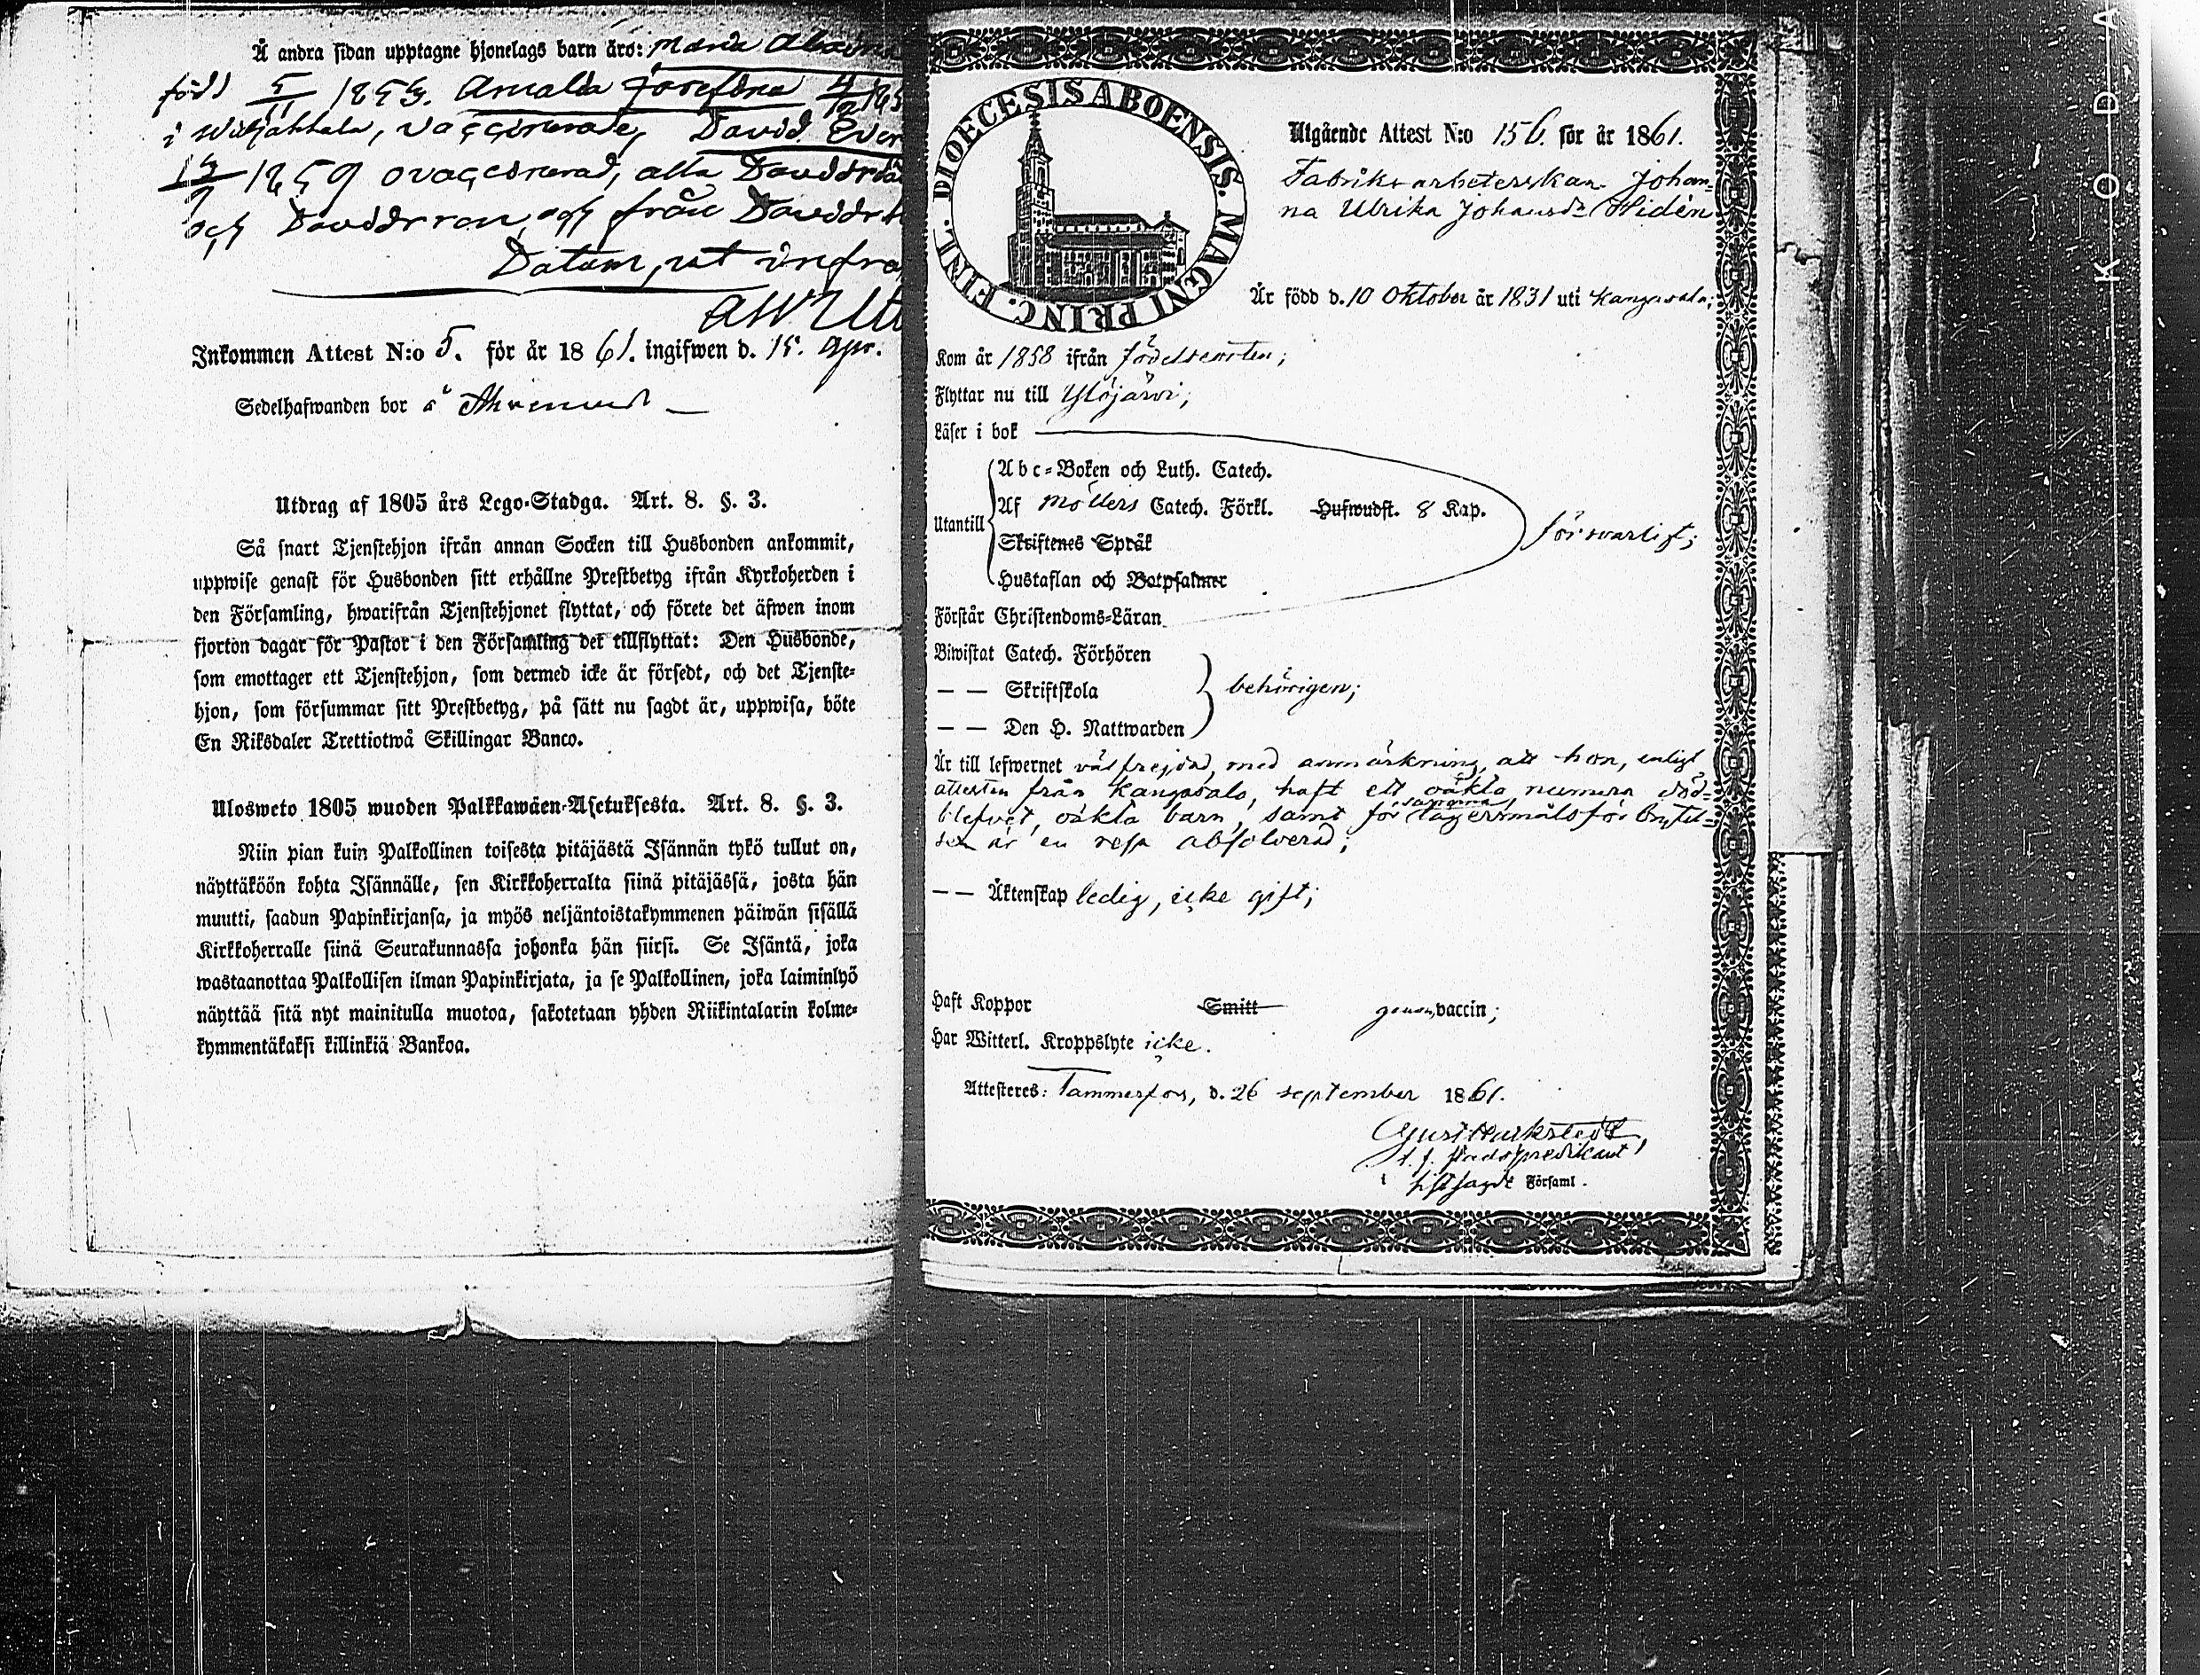 Å andra sidan upptagne hjonelags barn äro: Maria
född 5/11 1853. Amalia Josefina
i Wiljakkala, vaccinerade, David
1859 ovaccinerad, alla
och Davidsson, och från
Datum, ut infra
Inkommen Attest N:o 5. för år 1861. ingifwen d. 15. Apr.
Sedelhafwanden bor å
Utdrag af 1805 års Lego-Stadga. Art. 8. §. 3.
Så snart Tjenstehjon ifrån annan Socken till Husbonden ankommit,
uppwise genast för Husbonden sitt erhållne Prestbetyg ifrån Kyrkoherden i
den Församling, hwarifrån Tjenstehjonet flyttat, och förete det äfwen inom
fjorton dagar för Pastor i den Församling det tillflyttat: Den Husbonde,
som emottager ett Tjenstehjon, som dermed icke är försedt, och det Tjenste-
hjon, som försummar sitt Prestbetyg, på sätt nu sagdt är, uppwisa, böte
En Riksdaler Trettiotwå Skillingar Banco.
Ulosweto 1805 wuoden Palkkawäen-Asetuksesta. Art. 8. §. 3.
Niin pian kuin Palkollinen toisesta pitäjästä Isännän tykö tullut on,
näyttäköön kohta Isännälle, sen Kirkkoherralta siinä pitäjässä, josta hän
muutti, saadun Papinkirjansa, ja myös neljäntoistakymmenen päiwän sisällä
Kirkkoherralle siinä Seurakunnassa johonka hän siirsi. Se Isäntä, joka
wastaanottaa Palkollisen ilman Papinkirjata, ja se Palkollinen, joka laiminlyö
näyttää sitä nyt mainitulla muotoa, sakotetaan yhden Riikintalarin kolme-
kymmentäkaksi killinkiä Bankoa.
DIOECESIS ABOENSIS. MAGNI PRINC. FINL.
Utgående Attest N:o 156. för år 1861.
Fabriks arbeterskan Johan-
na Ulrika Johansdr Widén
Är född d. 10 Oktober år 1831 uti Kangasala;
Kom år 1858 ifrån födelseorten;
Flyttar nu till Ylöjärvi;
Läser i bok
Abc-Boken och Luth. Catech.
Utantill Af Möllers Catech. Förkl. Hufwudst. 8 Kap. försvarligt;
Skriftenes Språk
Hustaflan och Botpsalmer
Förstår Christendoms-Läran
Biwistat Catech. Förhören
— — Skriftskola behörigen;
— — Den H. Nattwarden
Är till lefwernet välfrejdad, med anmärkning, att hon, enligt
attesten från Kangasala, haft ett oäkta numera död-
blefvet, oäkta barn, samt för samma lägersmålsförbrytel-
sen är en resa absolverad;
— — Äktenskap ledig, icke gift;
Haft Koppor Smitt genom vaccin;
Har Witterl. Kroppslyte icke.
Attesteres: Tammerfors, d. 26 september 1861.
t. f. stadspredikant
i Församl.
KODA